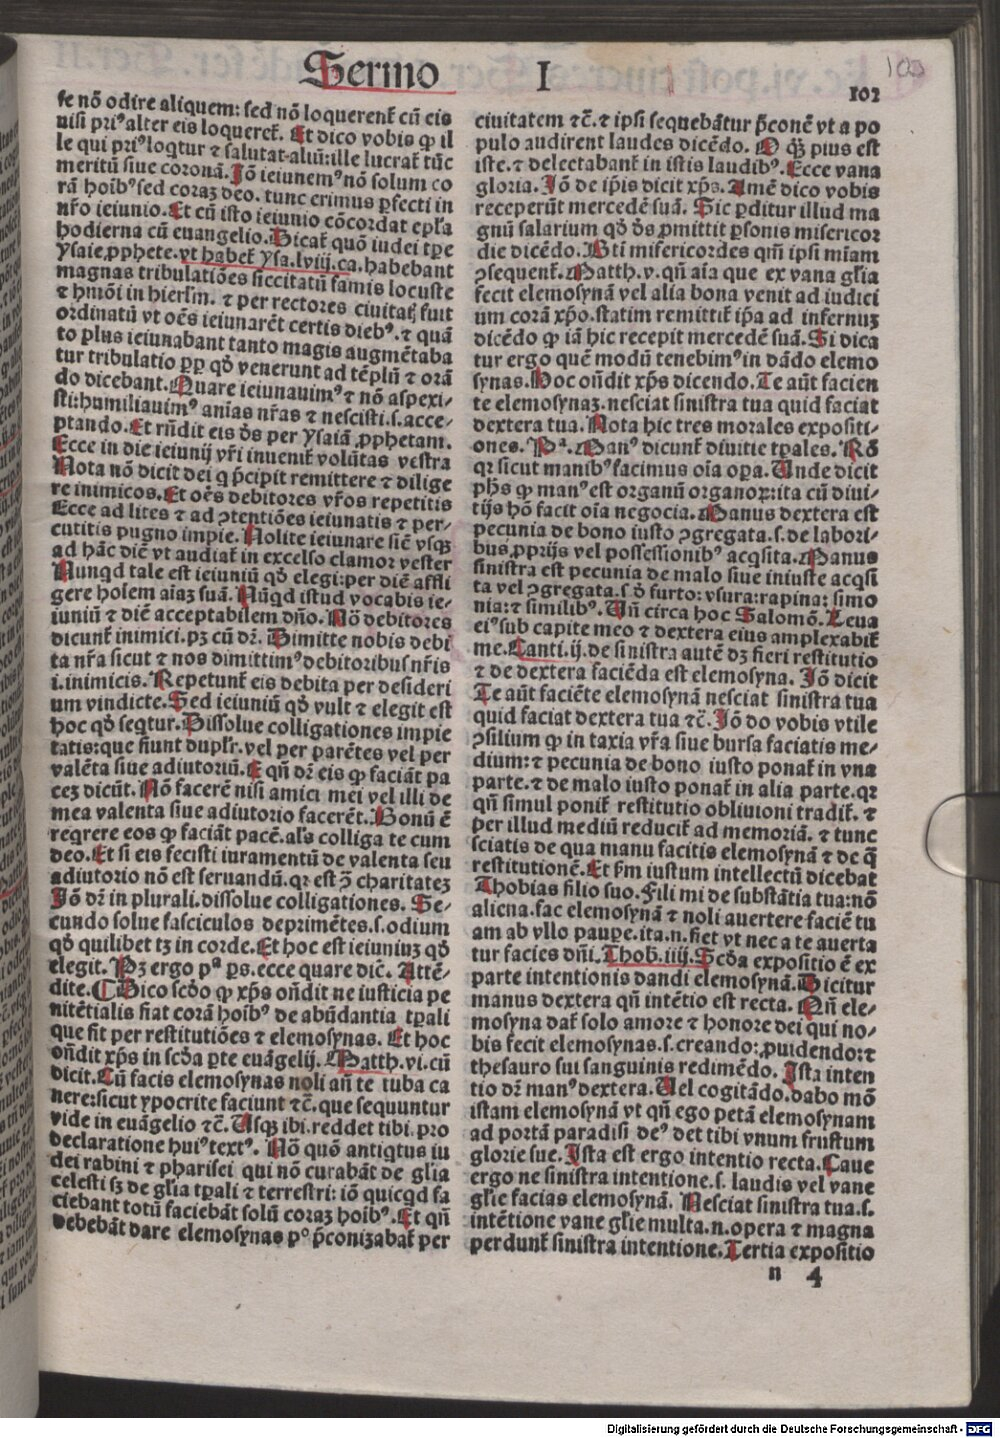 Sermo I
103
102
se nō odire aliquem: sed nō loquerent̄ cū eis
nisi pri⁹ alter eis loqueret̄. Et dico vobis ꝙ il
le qui pri⁹ loqt̄ur ⁊ salutat aliū: ille lucrat̄ tūc
meritū siue coronā. Iō ieiunem⁹ nō solum co
rā hoīb⁹ sed coraꝫ deo. tunc erimus ꝑfecti in
nr̄o ieiunio. Et cū isto ieiunio cōcordat epl̄a
hodierna cū euangelio. Dicat̄ quō iudei tꝑe
ysaie ꝓphete. vt habet̄ ysa. lviij. ca. habebant
magnas tribulatiōes siccitatū famis locuste
⁊ hmōi in hierl̄m. ⁊ per rectores ciuitatꝭ fuit
ordinatū vt oēs ieiunarēt certis dieb⁹. ⁊ quā
to plus ieiunabant tanto magis augmētaba
tur tribulatio ꝓꝑ qđ venerunt ad tēplū ⁊ orā
do dicebant. Quare ieiunauim⁹ ⁊ nō aspexi-
sti: humiliauim⁹ anīas nr̄as ⁊ nescisti. s. acce-
ptando. Et rn̄dit eis dn̄s per ysaiā ꝓphetam.
Ecce in die ieiunij vr̄i inuenit̄ volūtas vestra
Nota nō dicit dei q̄ p̄cipit remittere ⁊ dilige
re inimicos. Et oēs debitores vr̄os repetitis
Ecce ad lites ⁊ ad ꝯtentiōes ieiunatis ⁊ per-
cutitis pugno impie. Nolite ieiunare sic̄ vsqꝫ
ad hāc diē vt audiat̄ in excelso clamor vester
Nunqd tale est ieiuniū qđ elegi: per diē affli
gere hoīem aīaꝫ suā. Nūqd istud vocabis ie-
iuniū ⁊ diē acceptabilem dn̄o. Nō debitores
dicunt̄ inimici. pꝫ cū dr̄. Dimitte nobis debi
ta nr̄a sicut ⁊ nos dimittim⁹ debitoribus nr̄is
i. inimicis. Repetunt̄ eis debita per desideri
um vindicte. Sed ieiuniū qđ vult ⁊ elegit est
hoc qđ seqtur. Dissolue colligationes impie
tatis: que fiunt duplr̄. vel per parētes vel per
valēta siue adiutoriū. Et qn̄ dr̄ eis ꝙ faciāt pa
ceꝫ dicūt. Nō facerē nisi amici mei vel illi de
mea valenta siue adiutorio facerēt. Bonū ē
reqrere eos ꝙ faciāt pacē. als̄ colliga te cum
deo. Et si eis fecisti iuramentū de valenta seu
adiutorio nō est seruandū. qꝛ est ꝯ̄ charitateꝫ
Iō dr̄ in plurali. dissolue colligationes. Se-
cundo solue fasciculos deprimētes. s. odium
qđ quilibet tꝫ in corde. Et hoc est ieiuniuꝫ qđ
elegit. Pꝫ ergo pᵃ ps. ecce quare dic̄. Attē-
dite. ¶ Dico scđo ꝙ xp̄s on̄dit ne iusticia pe
nitētialis fiat corā hoīb⁹ de abūdantia tꝑali
que fit per restitutiōes ⁊ elemosynas. Et hoc
on̄dit xp̄s in scđa ꝑte euāgelij. Matth. vi. cū
dicit. Cū facis elemosynas noli an̄ te tuba ca
nere: sicut ypocrite faciunt ⁊c̄. que sequuntur
vide in euāgelio ⁊c̄. Vsqꝫ ibi. reddet tibi. pro
declaratione hui⁹ text⁹. Nō quō antiqtus iu
dei rabini ⁊ pharisei qui nō curabāt de gl̄ia
celesti sꝫ de gl̄ia tꝑali ⁊ terrestri: iō quicqd fa
ciebant totū faciebāt solū coraꝫ hoīb⁹. Et qn̄
debebāt dare elemosynas pº p̄conizabat̄ per
ciuitatem ⁊c̄. ⁊ ipsi sequebātur p̄conē vt a po
pulo audirent laudes dicēdo. O qꝫ pius est
iste. ⁊ delectabant̄ in istis laudib⁹. Ecce vana
gloria. Iō de ip̄is dicit xp̄s. Amē dico vobis
receperūt mercedē suā. Sic ꝑditur illud ma
gnū salarium qđ ds̄ ꝓmittit ꝑsonis misericor
die dicēdo. Bti misericordes qm̄ ipsi miam
ꝯsequent̄. Matth. v. qn̄ aīa que ex vana gl̄ia
fecit elemosynā vel alia bona venit ad iudici
um corā xp̄o. statim remittit̄ ip̄a ad infernuꝫ
dicēdo ꝙ iā hic recepit mercedē suā. Si dica
tur ergo quē modū tenebim⁹ in dādo elemo
synas. Hoc on̄dit xp̄s dicendo. Te aūt facien
te elemosynaꝫ. nesciat sinistra tua quid faciat
dextera tua. Nota hic tres morales expositi-
ones. Pᵃ. Man⁹ dicunt̄ diuitie tꝑales. Rō
qꝛ sicut manib⁹ facimus oīa oꝑa. Unde dicit
ph̄s ꝙ man⁹ est organū organoꝝ: ita cū diui-
tijs hō facit oīa negocia. Manus dextera est
pecunia de bono iusto ꝯgregata. s. de labori-
bus ꝓprijs vel possessionib⁹ acqsita. Manus
sinistra est pecunia de malo siue iniuste acqsi
ta vel ꝯgregata. s. đ furto: vsura: rapina: simo
nia: ⁊ similib⁹. Un̄ circa hoc Salomō. Leua
ei⁹ sub capite meo ⁊ dextera eius amplexabit̄
me. Canti. ij. de sinistra autē dꝫ fieri restitutio
⁊ de dextera faciēda est elemosyna. Iō dicit
Te aūt faciēte elemosynā nesciat sinistra tua
quid faciat dextera tua ⁊c̄. Iō do vobis vtile
ꝯsilium ꝙ in taxia vr̄a siue bursa faciatis me-
dium: ⁊ pecunia de bono iusto ponat̄ in vna
parte. ⁊ de malo iusto ponat̄ in alia parte. qꝛ
qn̄ simul ponit̄ restitutio obliuioni tradit̄. ⁊
per illud mediū reducit̄ ad memoriā. ⁊ tunc
sciatis de qua manu facitis elemosynā ⁊ de q̄
restitutionē. Et fm̄ iustum intellectū dicebat
Thobias filio suo. Fili mi de substātia tua: nō
aliena. fac elemosynā ⁊ noli auertere faciē tu
am ab vllo pauꝑe. ita. n. fiet vt nec a te auerta
tur facies dn̄i. Thob. iiij. Scđa expositio ē ex
parte intentionis dandi elemosynā. Dicitur
manus dextera qn̄ intētio est recta. Qn̄ ele-
mosyna dat̄ solo amore ⁊ honore dei qui no-
bis fecit elemosynas. s. creando: ꝓuidendo: ⁊
thesauro sui sanguinis redimēdo. Ista inten
tio dr̄ man⁹ dextera. Uel cogitādo. dabo mō
istam elemosynā vt qn̄ ego petā elemosynam
ad portā paradisi de⁹ det tibi vnum frustum
glorie sue. Ista est ergo intentio recta. Caue
ergo ne sinistra intentione. s. laudis vel vane
gl̄ie facias elemosynā. Nesciat sinistra tua. s.
intētione vane gl̄ie multa. n. opera ⁊ magna
perdunt̄ sinistra intentione. Tertia expositio
n 4
Digitalisierung gefördert durch die Deutsche Forschungsgemeinschaft - DFG